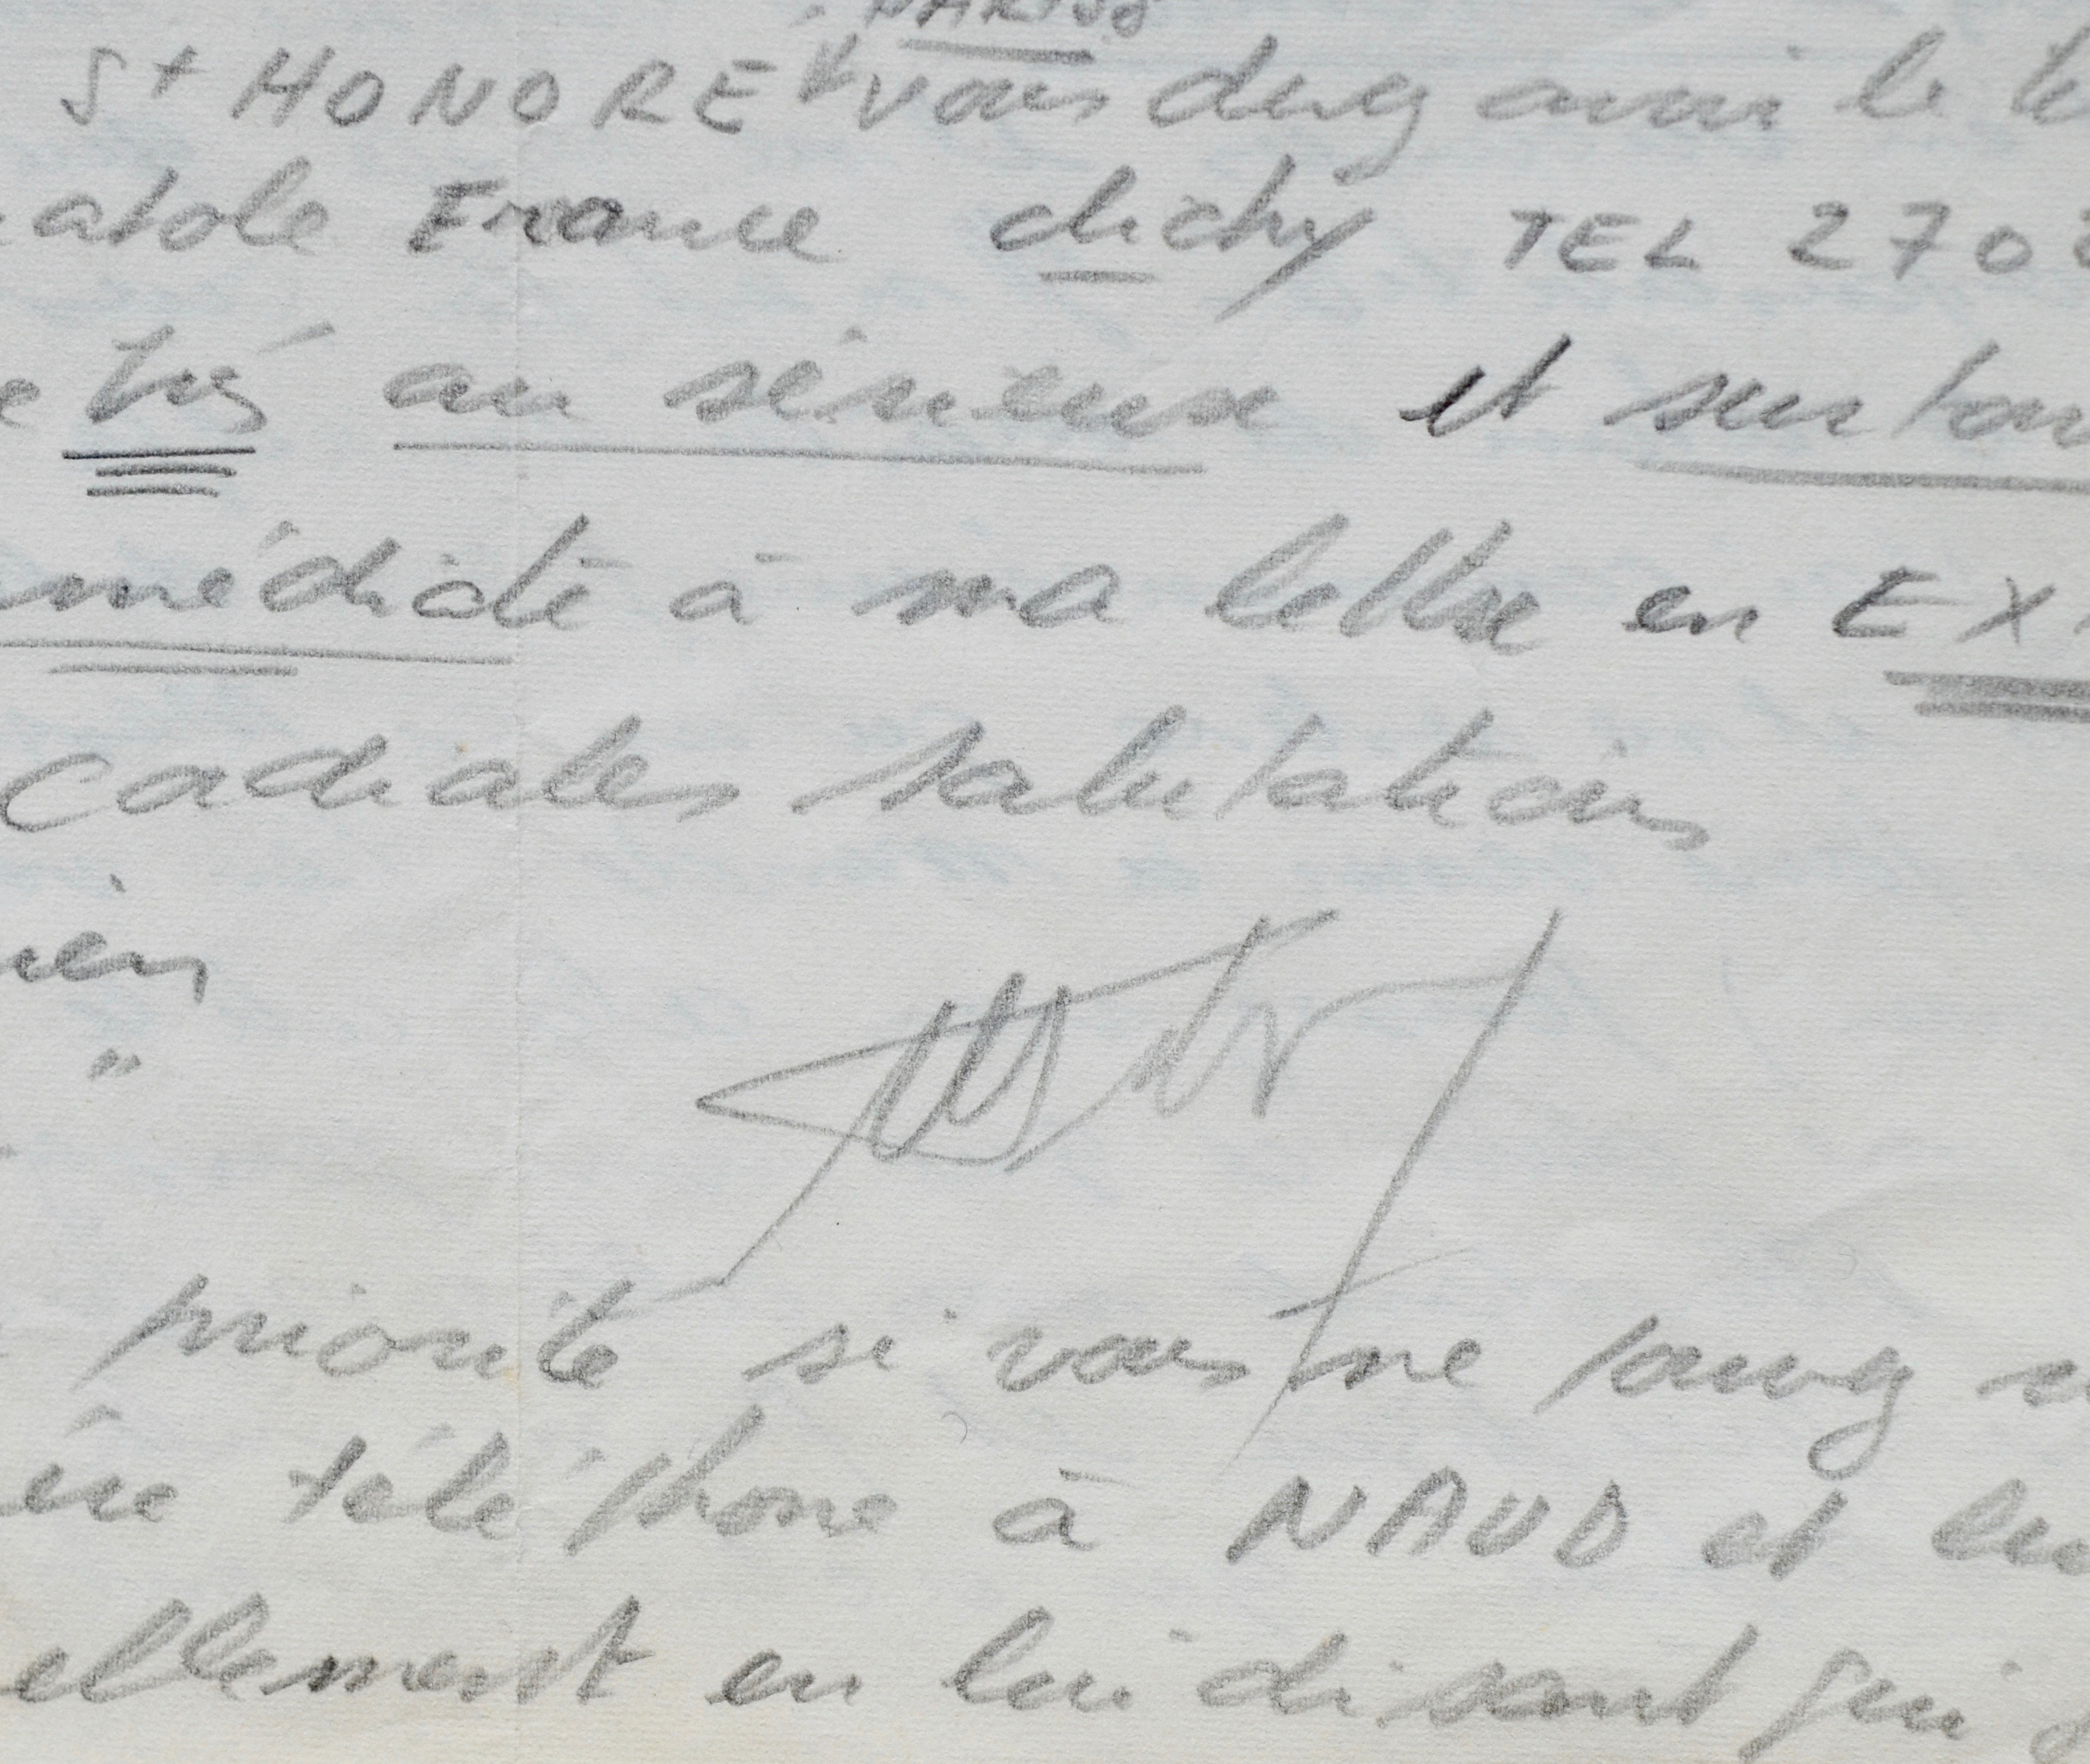 St HONORE vous aussi le
atole France clichy TEL 270
très au sérieux et surtou
médiate à ma lettre en EX
cordiales salutations
"
priorité si vous ne
téléphone à NAUD et lui
ellement en lui disant qui